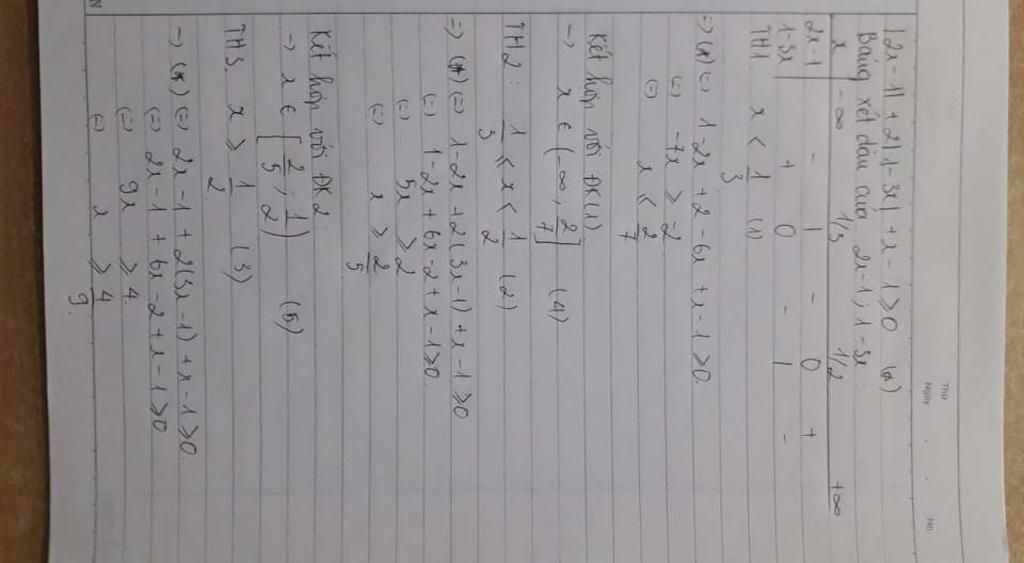 Thứ
Ngày No
|2x-1| + 2|1-3x| + x - 1 ≥ 0 (*)
Bảng xét dấu của 2x-1, 1-3x
x -∞ 1/3 1/2 +∞
2x-1 - | - 0 +
1-3x + 0 - | -
TH1 x < 1/3 (1)
=> (*) (=) 1-2x + 2 - 6x + x - 1 ≥ 0
(=) -7x ≥ -2
(=) x ≤ 2/7
Kết hợp với ĐK(1)
-> x ∈ (-∞, 2/7] (4)
TH2: 1/3 ≤ x < 1/2 (2)
=> (*) (=) 1-2x + 2(3x-1) + x - 1 ≥ 0
(=) 1-2x + 6x - 2 + x - 1 ≥ 0
(=) 5x ≥ 2
(=) x ≥ 2/5
Kết hợp với ĐK 2:
-> x ∈ [2/5; 1/2) (5)
TH3 x ≥ 1/2 (3)
-> (*) (=) 2x - 1 + 2(3x-1) + x - 1 ≥ 0
(=) 2x - 1 + 6x - 2 + x - 1 ≥ 0
(=) 9x ≥ 4
(=) x ≥ 4/9